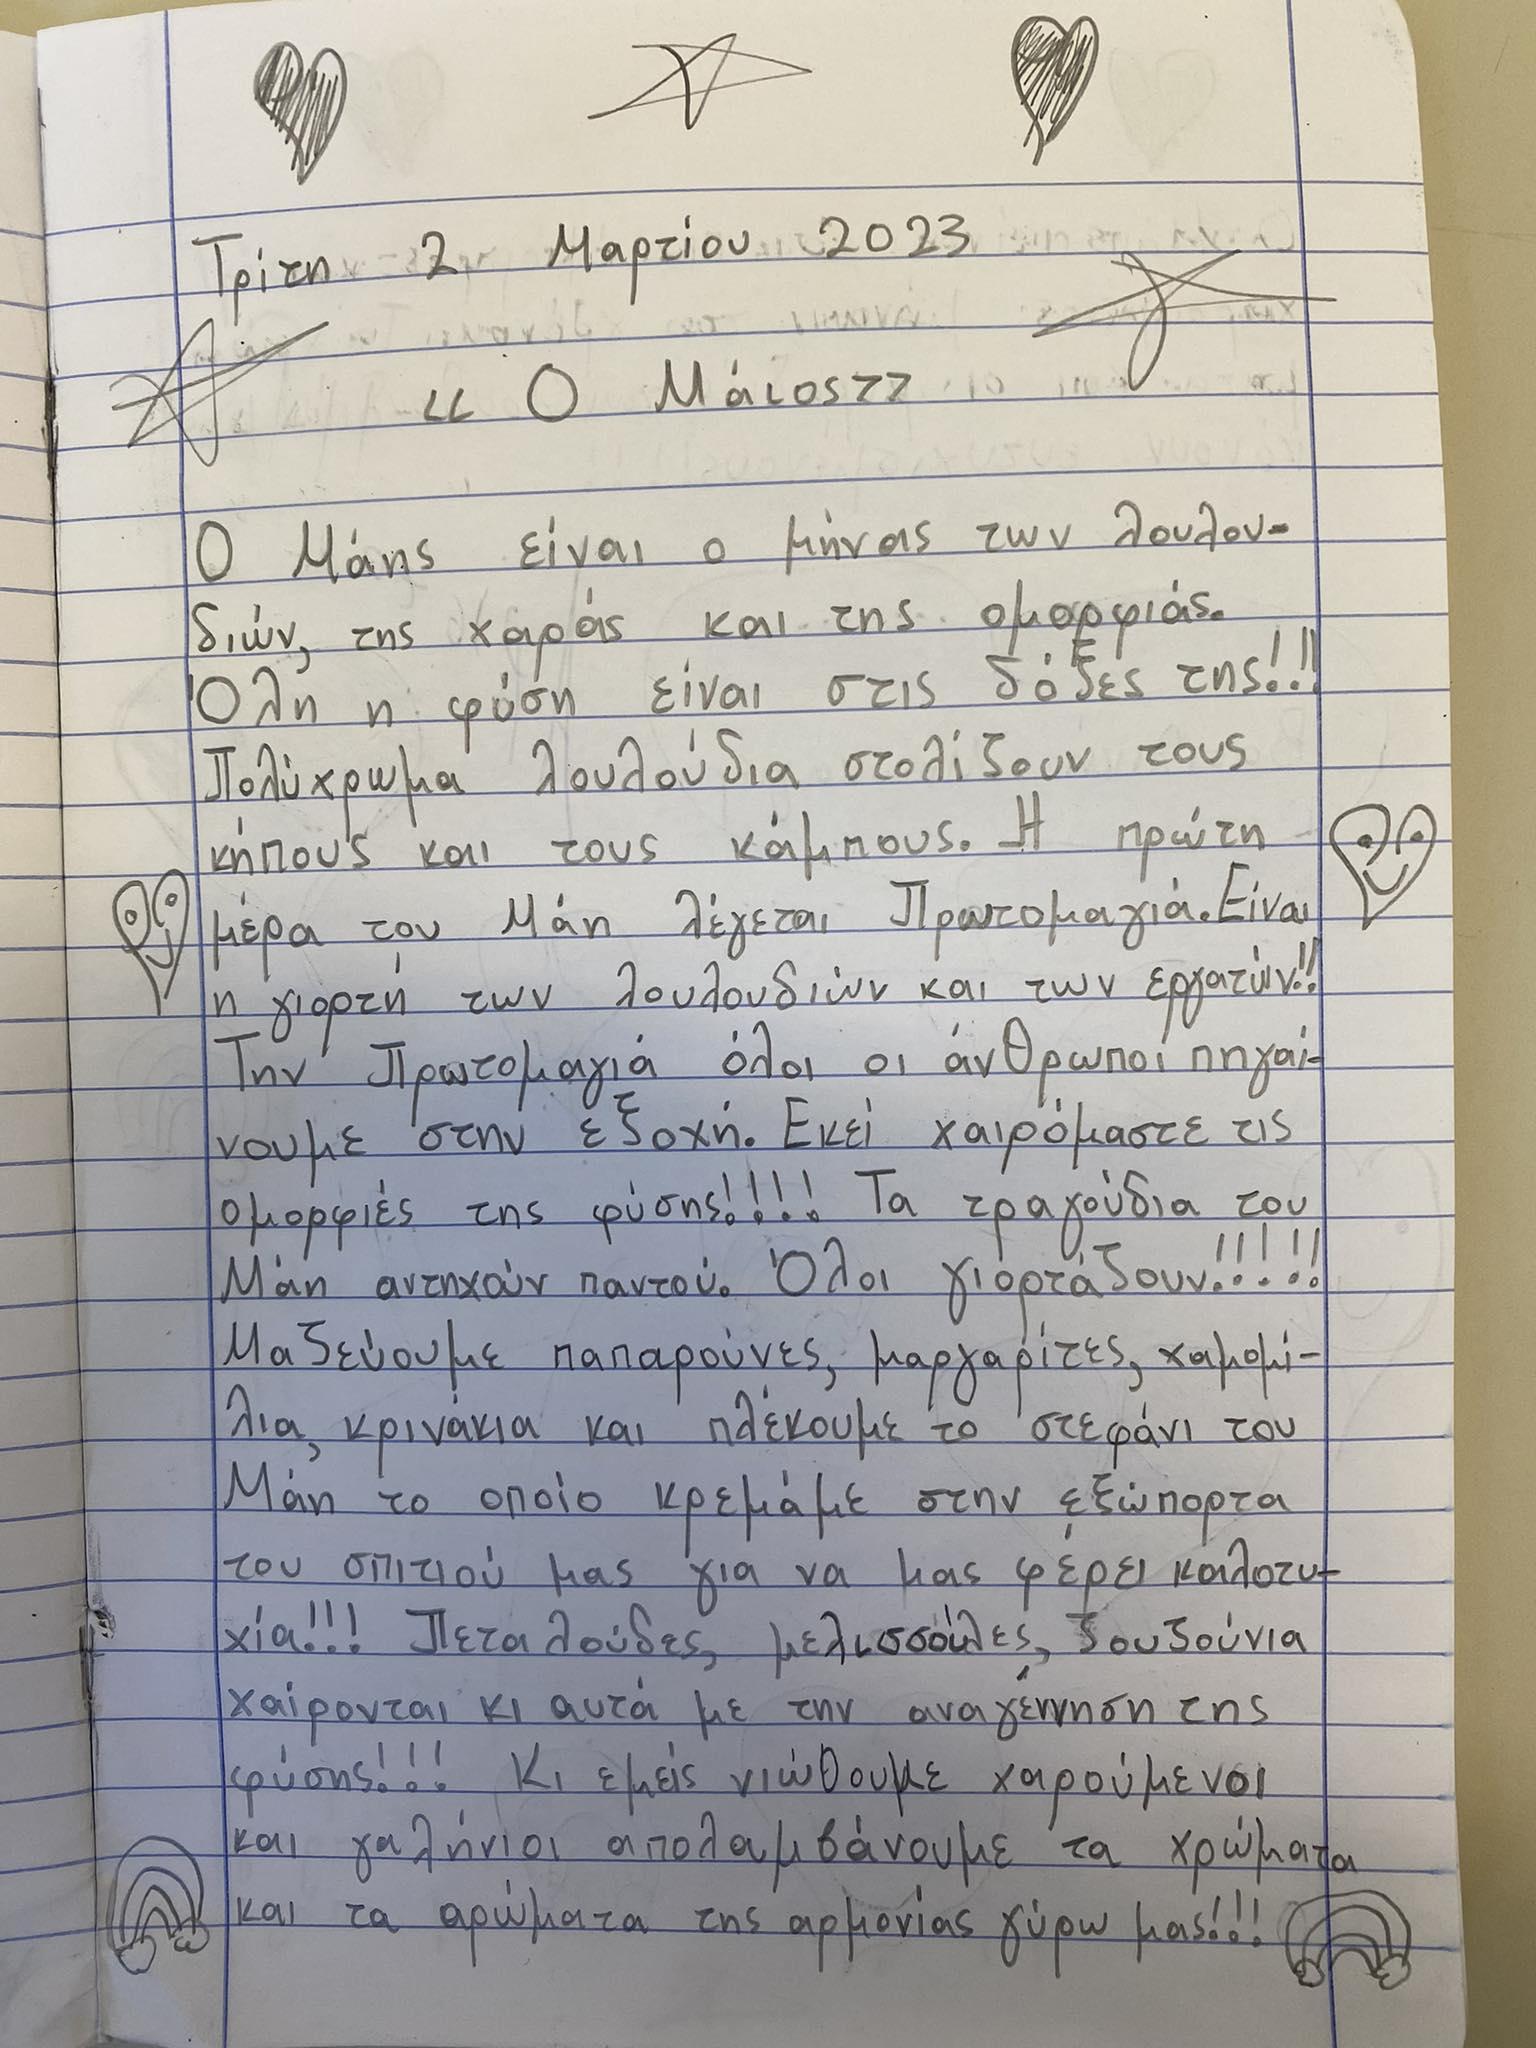 Τρίτη 2 Μαρτίου 2023
« Ο Μάιος»
Ο Μάης είναι ο μήνας των λουλου-
διών, της χαράς και της ομορφιάς.
Όλη η φύση είναι στις δόξες της!!!
Πολύχρωμα λουλούδια στολίζουν τους
κήπους και τους κάμπους. Η πρώτη
μέρα του Μάη λέγεται Πρωτομαγιά. Είναι
η γιορτή των λουλουδιών και των εργατών!!
Την Πρωτομαγιά όλοι οι άνθρωποι πηγαί-
νουμε στην εξοχή. Εκεί χαιρόμαστε τις
ομορφιές της φύσης!!!! Τα τραγούδια του
Μάη αντηχούν παντού. Όλοι γιορτάζουν!!!!!
Μαζεύουμε παπαρούνες, μαργαρίτες, χαμομί-
λια, κρινάκια και πλέκουμε το στεφάνι του
Μάη το οποίο κρεμάμε στην εξώπορτα
του σπιτιού μας για να μας φέρει καλοτυ-
χία!!! Πεταλούδες, μελισσούλες, ζουζούνια
χαίρονται κι αυτά με την αναγέννηση της
φύσης!!! Κι εμείς νιώθουμε χαρούμενοι
και γαλήνιοι απολαμβάνουμε τα χρώματα
και τα αρώματα της αρμονίας γύρω μας!!!